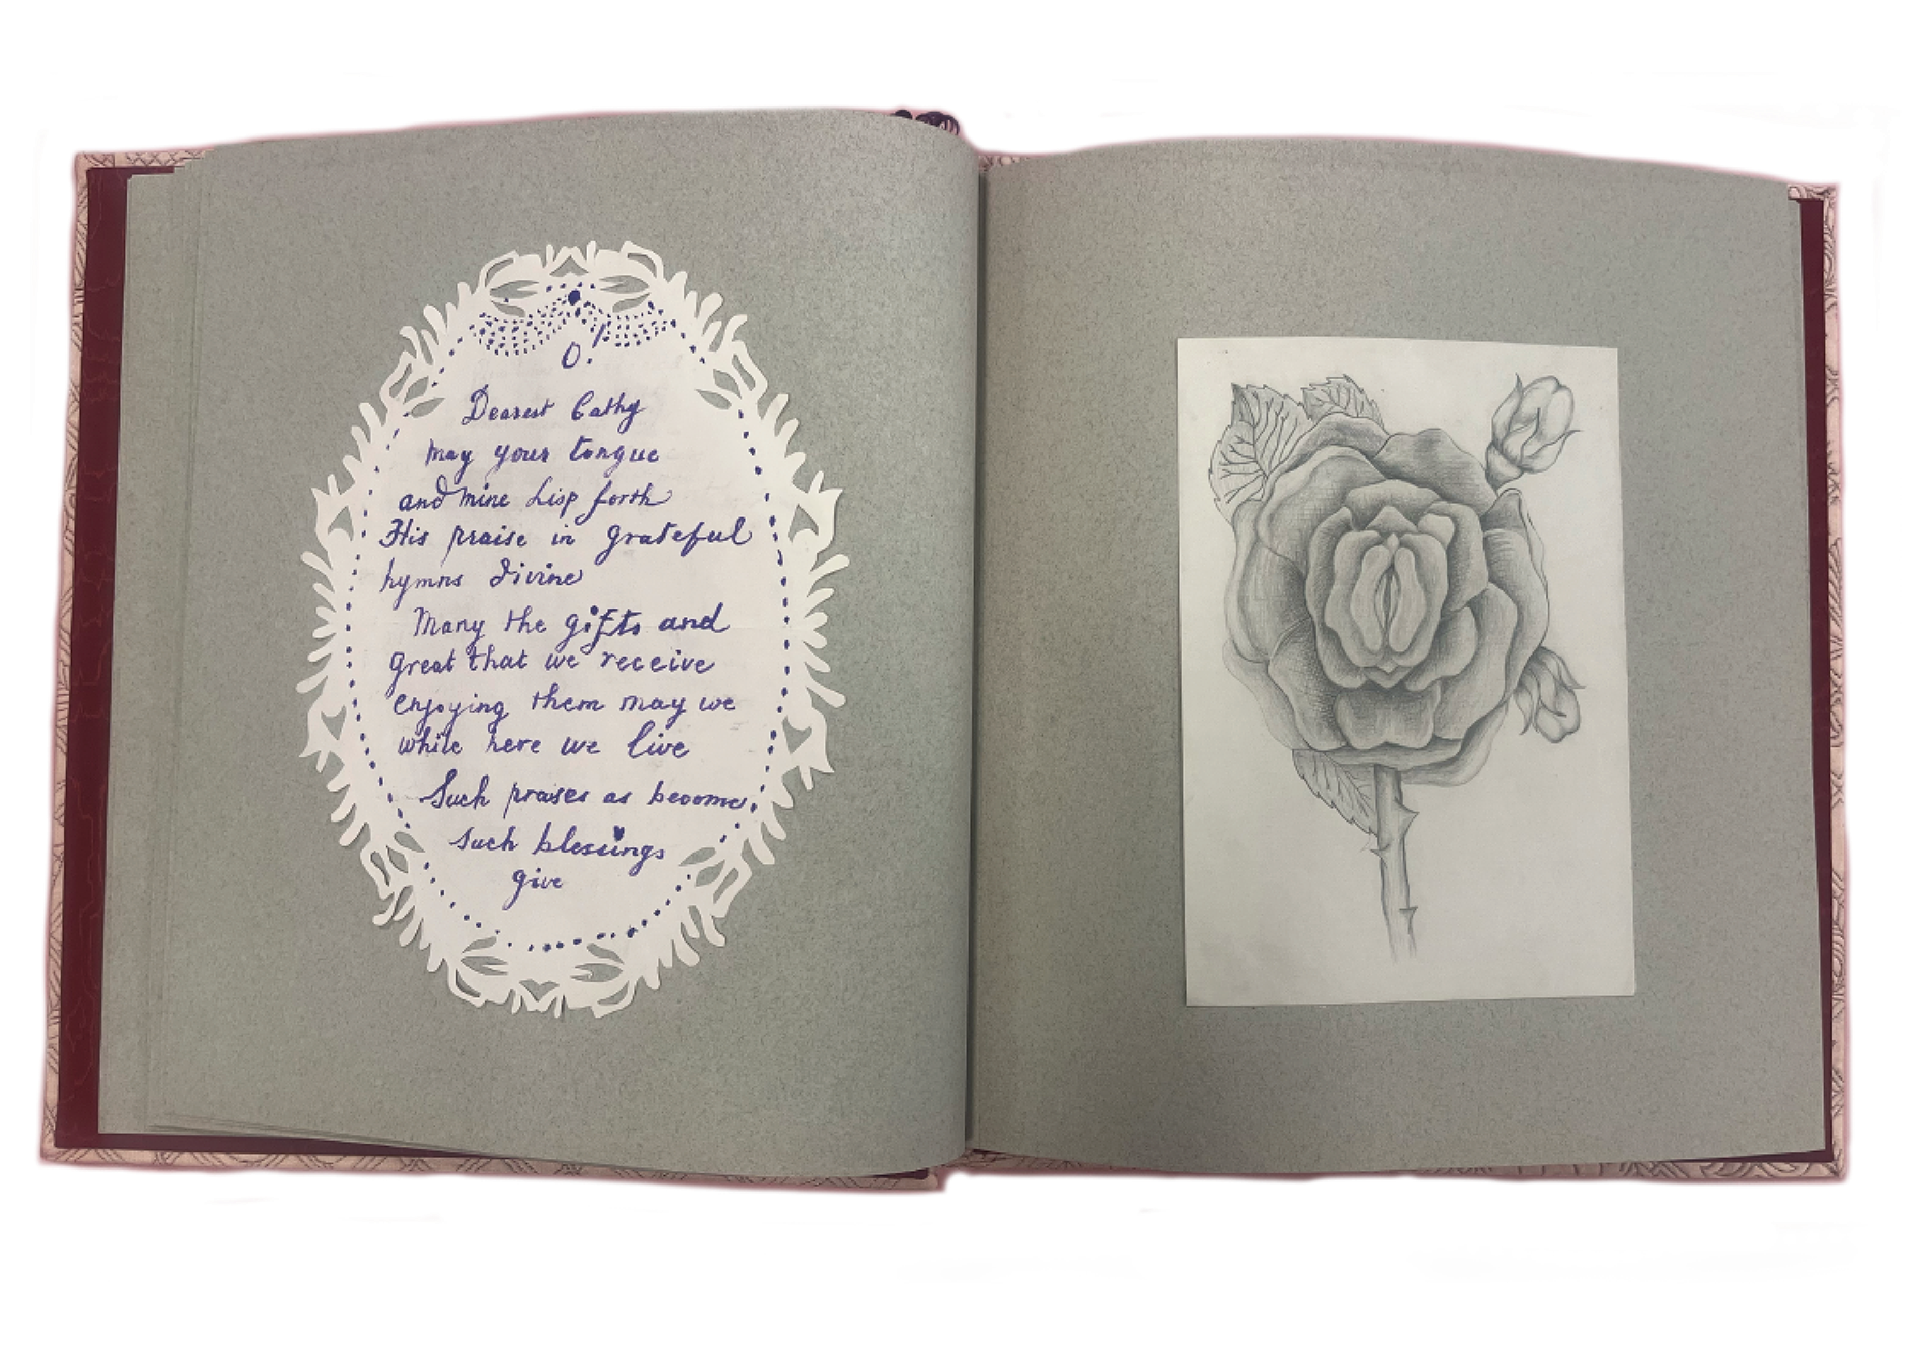 O!
Dearest Cathy
may your tongue
and mine Lisp forth
His praise in grateful
hymns divine
Many the gifts and
great that we receive
enjoying them may we
while here we live
Such praises as become
such blessings
give